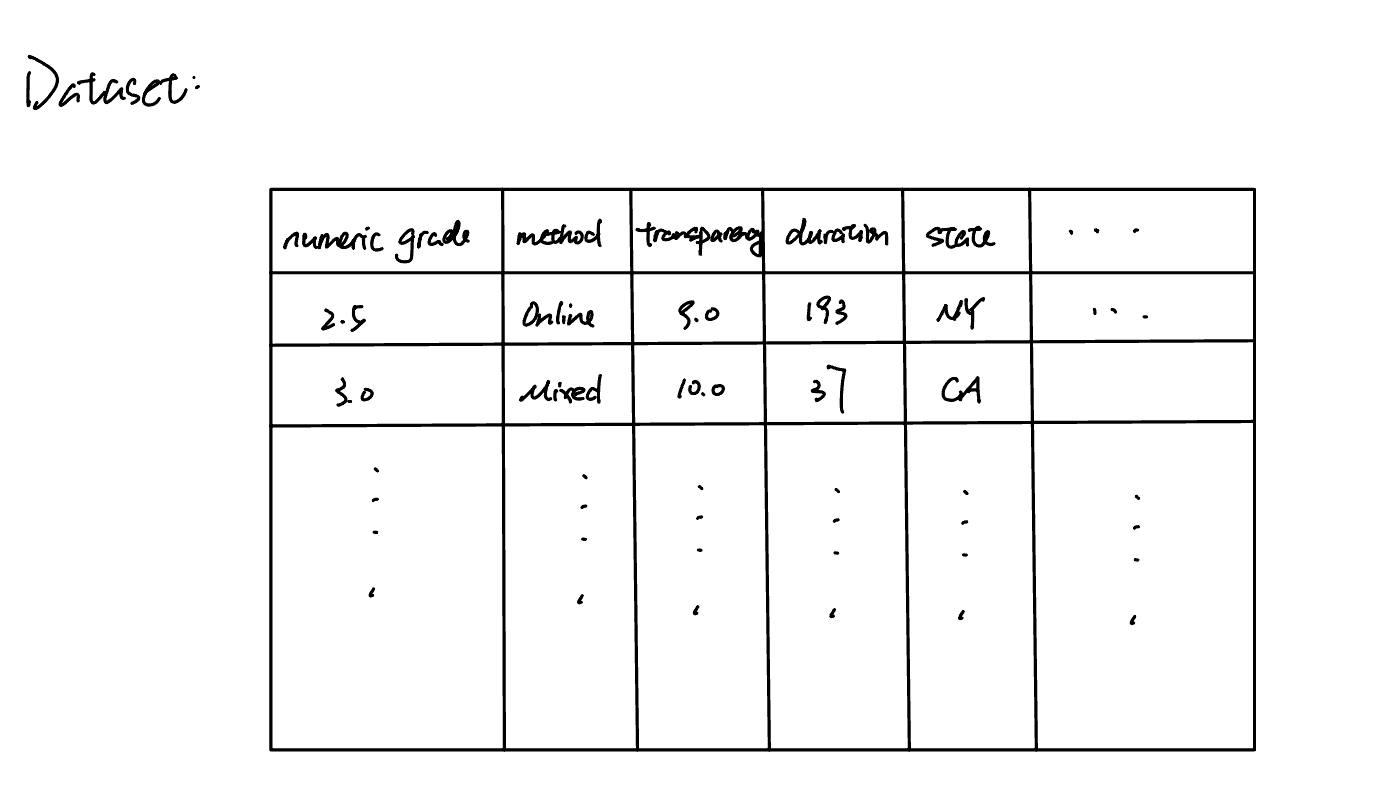 Dataset:
numeric grade method transparency duration state ...
2.5 Online 9.0 193 NY ...
3.0 Mixed 10.0 37 CA